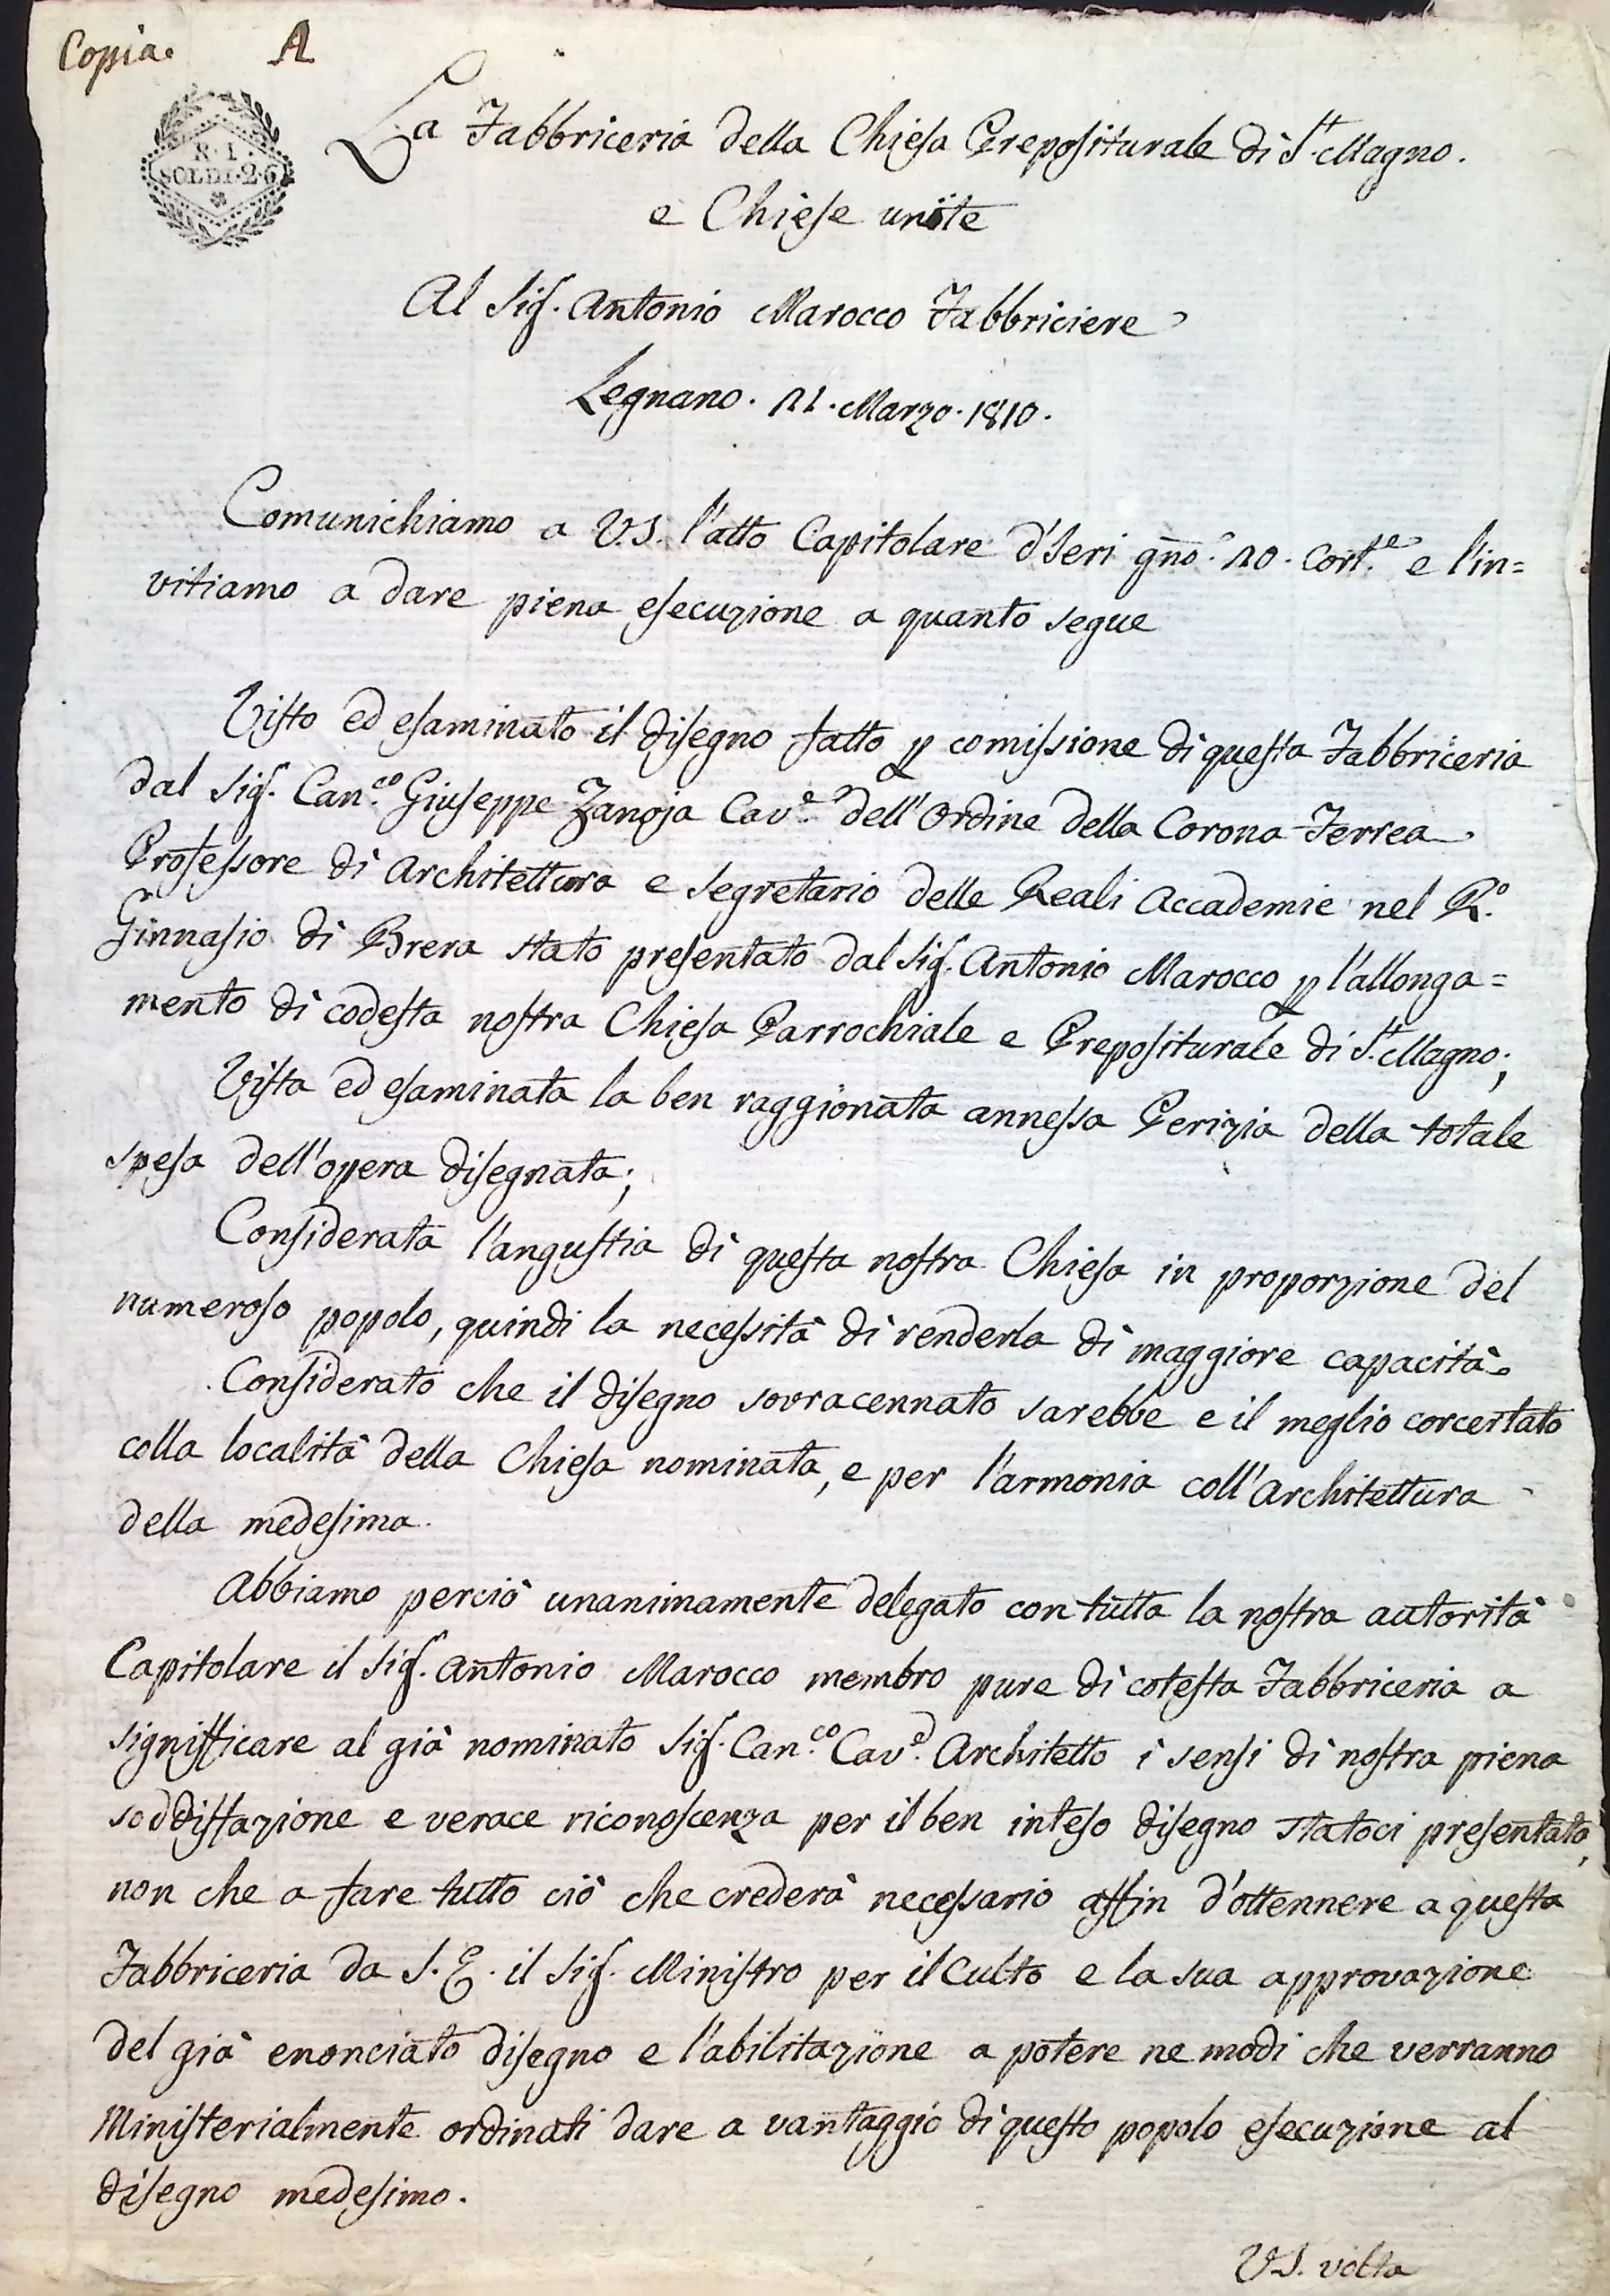 Copia. A
R. I.
SOLDI. 2. 6
La Fabbriceria della Chiesa Prepositurale di S.t Magno.
e Chiese unite
Al Sig.r Antonio Marocco Fabbriciere
Legnano. 21. Marzo. 1810.
Comunichiamo a V.S. l'atto Capitolare d'Jeri gno. 20. Corr.e e l'in=
vitiamo a dare piena esecuzione a quanto segue
Visto ed esaminato il disegno fatto p comissione di questa Fabbriceria
dal Sig.r Can.co Giuseppe Zanoja Cav.e dell'Ordine della Corona Ferrea
Professore di Architettura e Segretario delle Reali Accademie nel R.o
Ginnasio di Brera stato presentato dal Sig.r Antonio Marocco p l'allonga=
mento di codesta nostra Chiesa Parrochiale e Prepositurale di S.t Magno;
Vista ed esaminata la ben raggionata annessa Perizia della totale
spesa dell'opera disegnata;
Considerata l'angustia di questa nostra Chiesa in proporzione del
numeroso popolo, quindi la necessità di renderla di maggiore capacità.
Considerato che il disegno sovracennato sarebbe e il meglio corcertato
colla località della Chiesa nominata, e per l'armonia coll'Architettura
della medesima.
Abbiamo perciò unanimamente delegato con tutta la nostra autorità
Capitolare il Sig.r Antonio Marocco membro pure di cotesta Fabbriceria a
significare al già nominato Sig.r Can.co Cav.e Architetto i sensi di nostra piena
soddisfazione e verace riconoscenza per il ben inteso disegno statoci presentato,
non che a fare tutto ciò che crederà necessario affin d'ottennere a questa
Fabbriceria da S. E. il Sig.r Ministro per il Culto e la sua approvazione
del già enonciato disegno e l'abilitazione a potere ne modi che verranno
Ministerialmente ordinati dare a vantaggio di questo popolo esecuzione al
disegno medesimo.
VS. volta